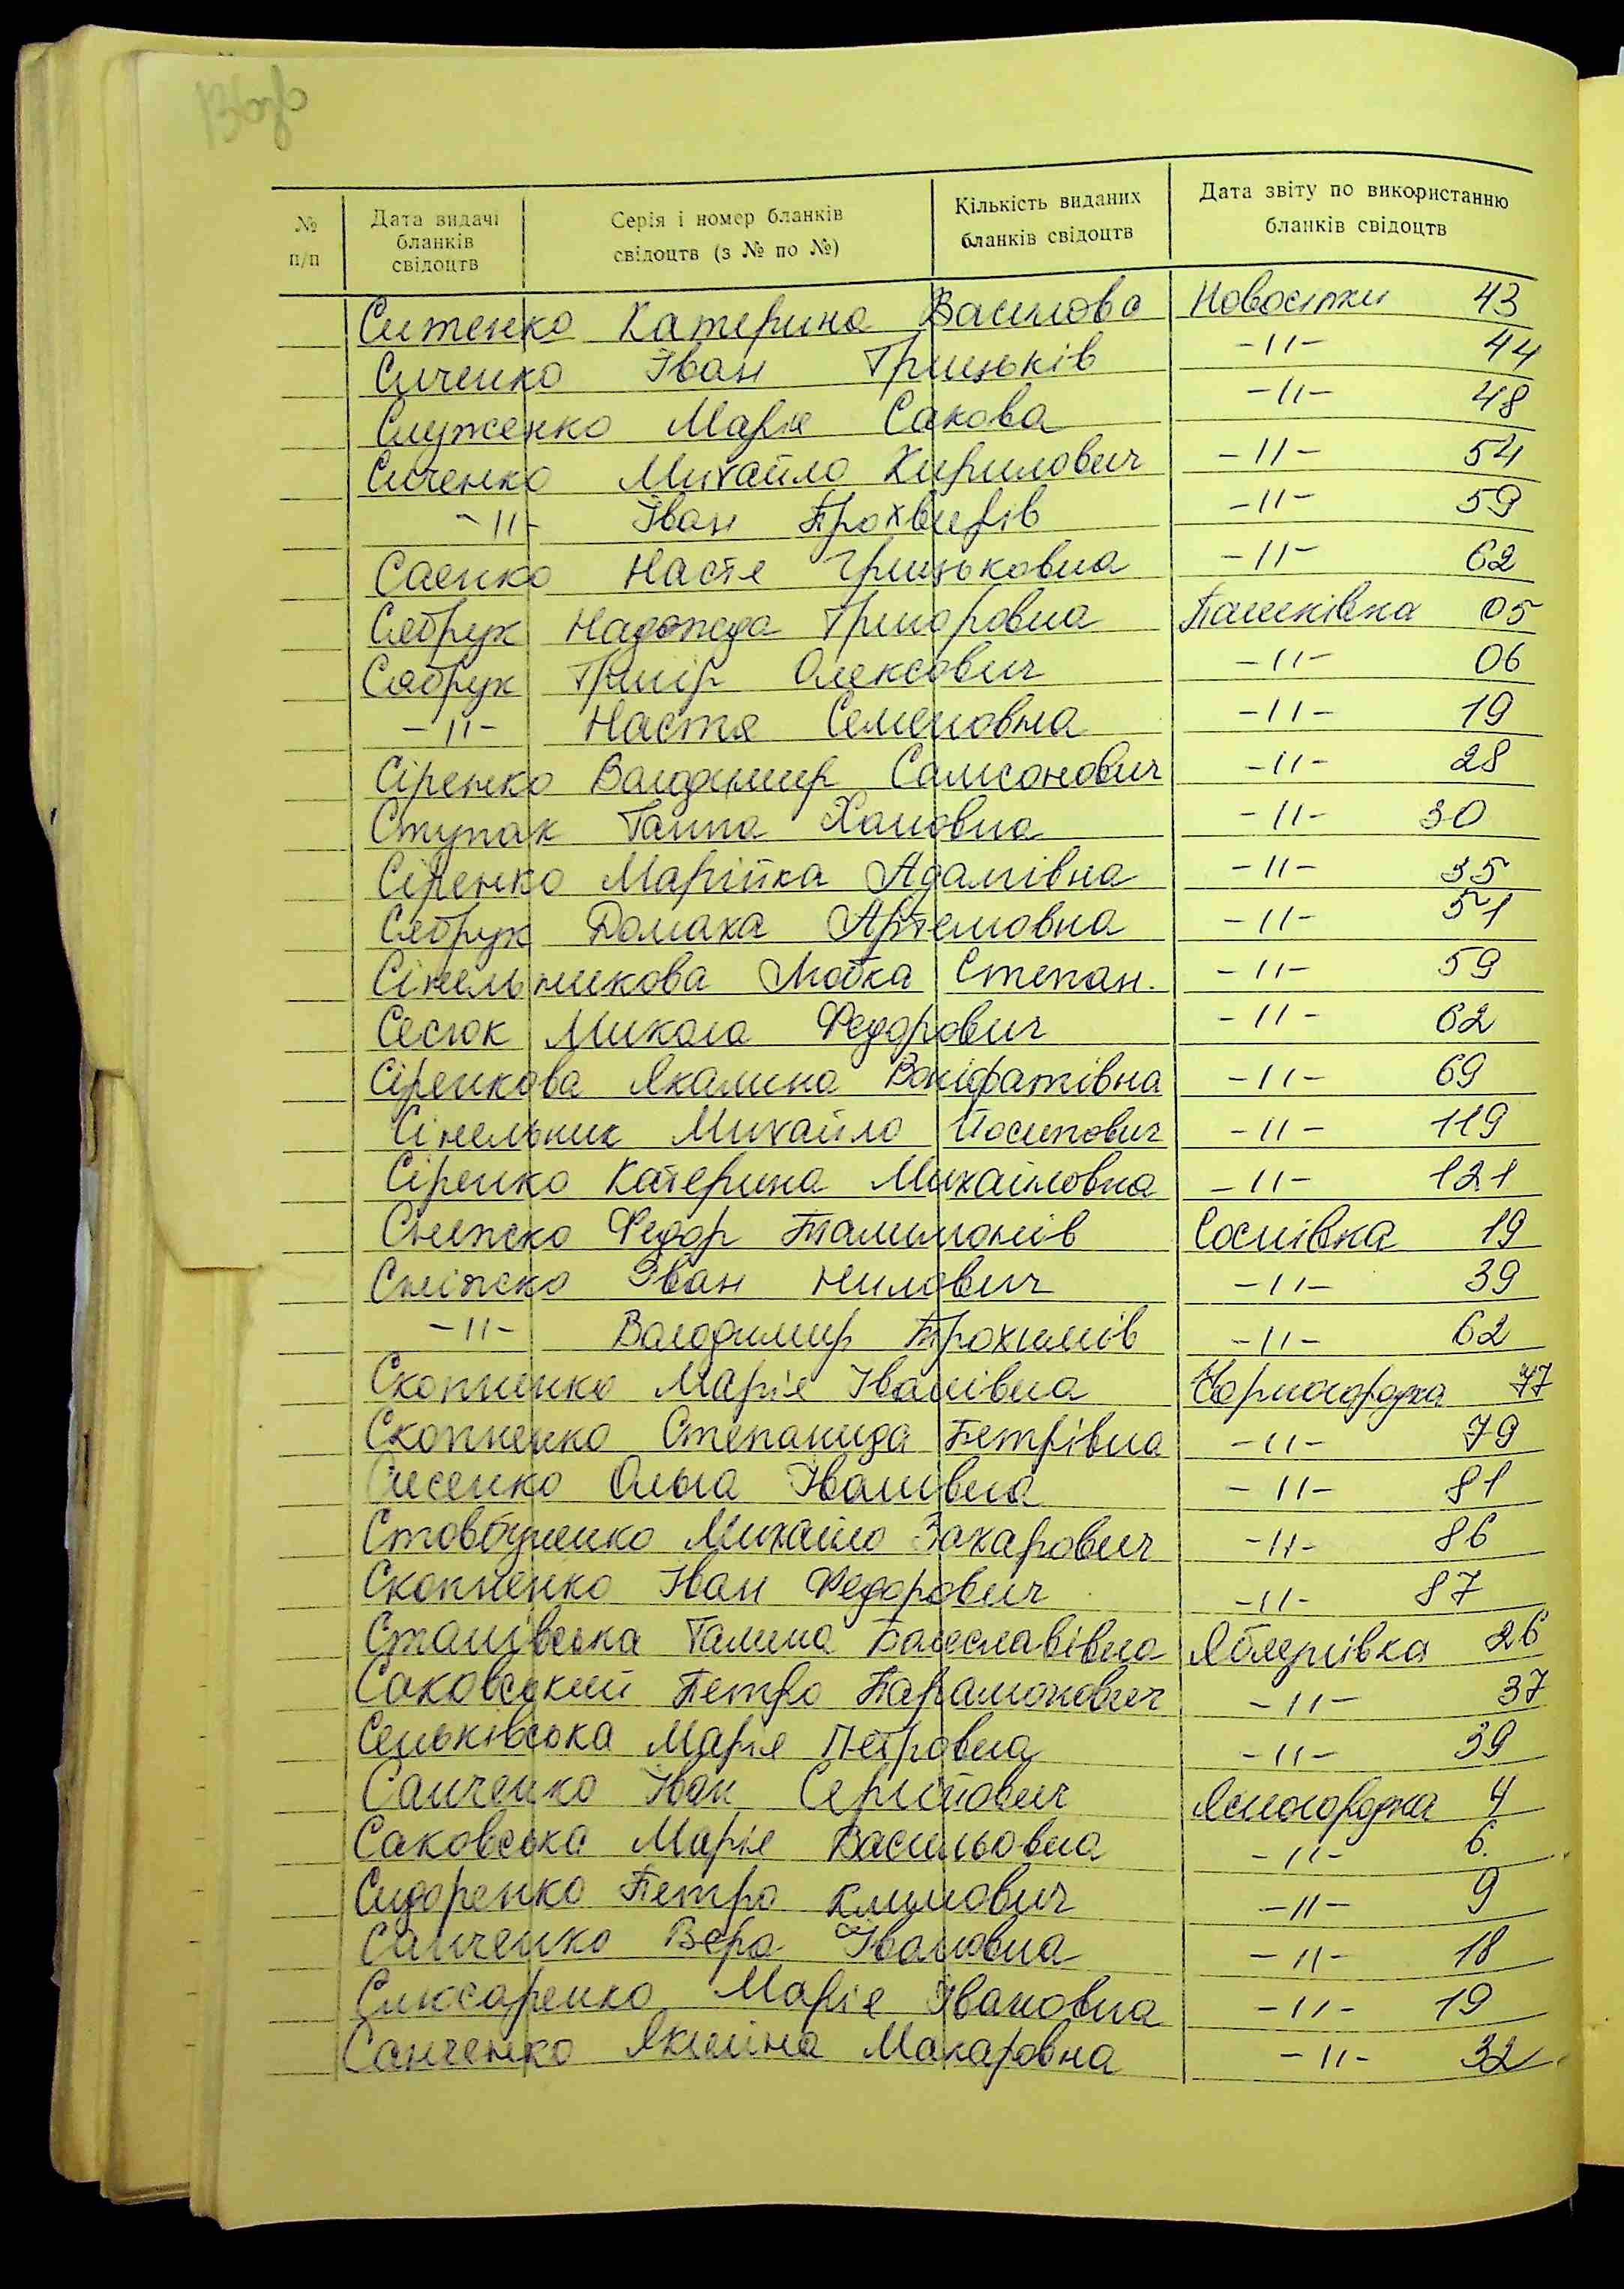 № п/п
Дата видачі бланків свідоцтв
Серія і номер бланків свідоцтв (з № по №)
Кількість виданих бланків свідоцтв
Дата звіту по використанню бланків свідоцтв
Ситенко Катерина Василова Новосілки 43
Сиченко Іван Грицьків -11- 44
Служенко Марія Сакова -11- 48
Сиченко Михайло Кирилович -11- 54
-11- Іван Прохвирів -11- 59
Саенко Настя Грицьковна -11- 62
Сябрук Надежда Григоровна Пашківка 05
Сябрук Григір Олексович -11- 06
-11- Настя Семеновна -11- 19
Сіренко Володимир Самсонович -11- 28
Ступак Ганна Хамовна -11- 30
Сіренко Марійка Адамівна -11- 35
Сябрук Домаха Артемовна -11- 51
Сінельникова Любка Степан. -11- 59
Сесюк Микола Федорович -11- 62
Сіренкова Якилина Воніфатівна -11- 69
Сінельник Михайло Йосипович -11- 119
Сіренко Катерина Михайловна -11- 121
Сніжко Федор Талимонів Соснівка 19
Сніжко Іван Нилович -11- 39
-11- Володимир Трохимів -11- 62
Скопненко Марія Іванівна Чорногородка 77
Скопненко Степанида Петрівна -11- 79
Лисенко Ольга Іванівна -11- 81
Стовбуненко Михайло Захарович -11- 86
Скопненко Іван Федорович -11- 87
Станівська Галина Болеславівна Яблунівка 26
Саковський Петро Парамонович -11- 37
Сеньківська Марія Петровна -11- 39
Санченко Іван Сергійович Ясногородка 4
Саковська Марія Васильовна -11- 6.
Сидоренко Петро Климович -11- 9
Санченко Вера Івановна -11- 18
Слюсаренко Марія Івановна -11- 19
Санченко Якилина Макаровна -11- 32